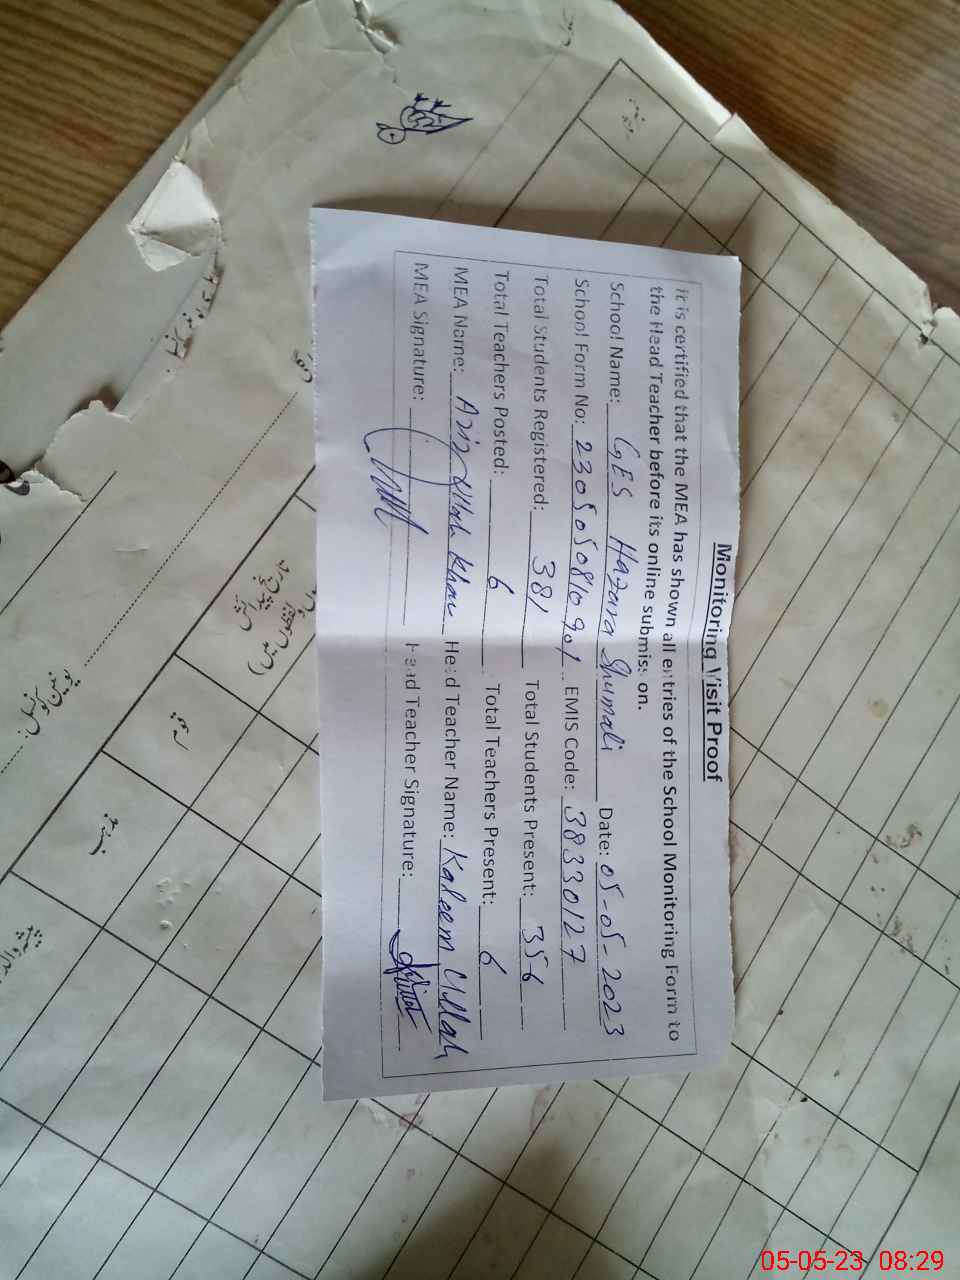 Monitoring Visit Proof
It is certified that the MEA has shown all entries of the School Monitoring Form to
the Head Teacher before its online submission.
School Name: GES Hazara Shumali Date: 05-05-2023
School Form No: 2305050810901 EMIS Code: 38330127
Total Students Registered: 381 Total Students Present: 356
Total Teachers Posted: 6 Total Teachers Present: 6
MEA Name: Aziz Ullah Khan Head Teacher Name: Kaleem Ullah
MEA Signature: Head Teacher Signature:
یونین کونسل:
تاریخ پیدائش
قوم
مذہب
05-05-23 08:29